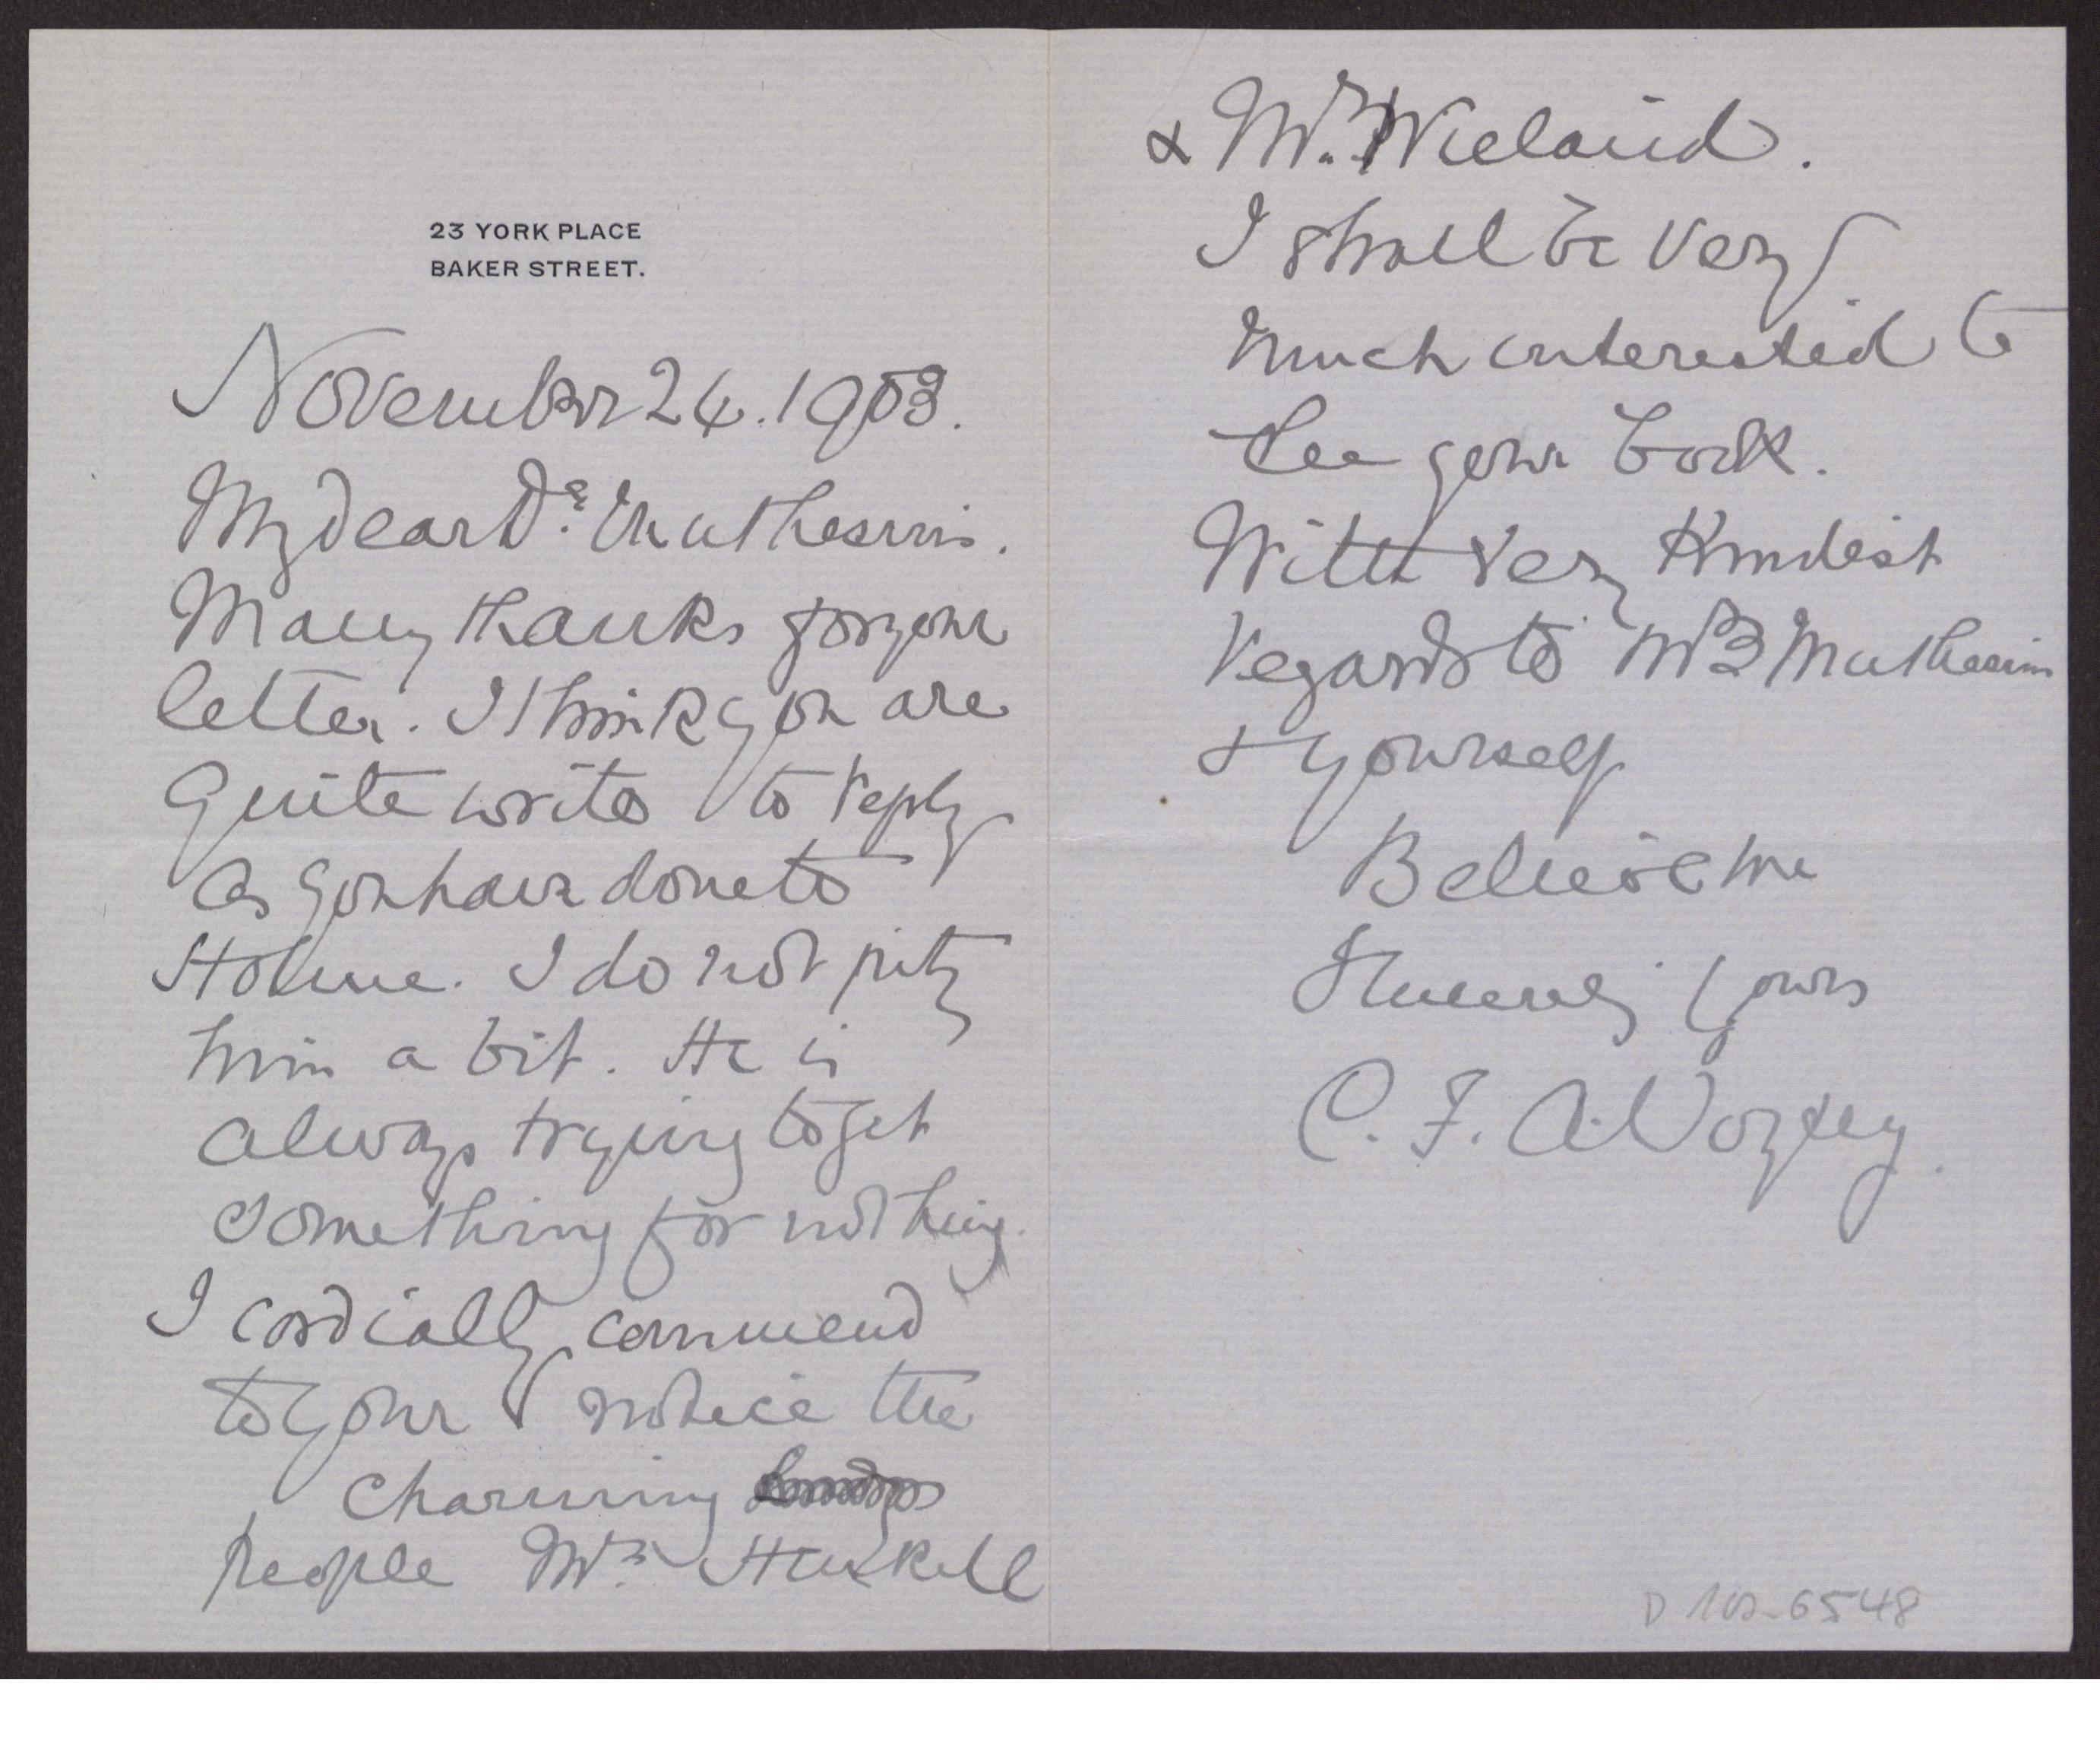 23 YORK PLACE
BAKER STREET.
November 24. 1903.
My dear Dr. Muthesius.
Many thanks for your
letter. I think you are
quite write to reply
as you have done to
Holme. I do not pity
him a bit. He is
always trying to get
something for nothing.
I cordially commend
to your notice the
charming
people Mrs.
& Mr. Wieland.
I shall be very
much interested to
see your book.
With very kindest
regards to Mrs Muthesius
& yourself
Believe me
Sincerely yours
C. F. A. Voysey.
D 102-6548